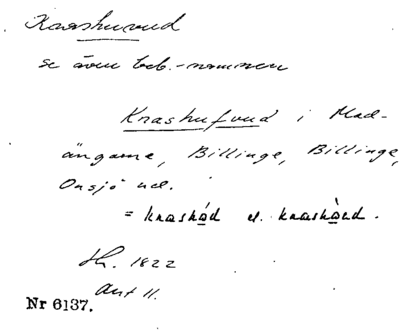 Krashuvud
se även beb.-namnen
Krashufvud i Mad-
ängarne, Billinge, Billinge,
Onsjö hd.
= kraskǫd el. kraskǫ̀ud.
Sk. 1822
Ant 11.
Nr 6137.